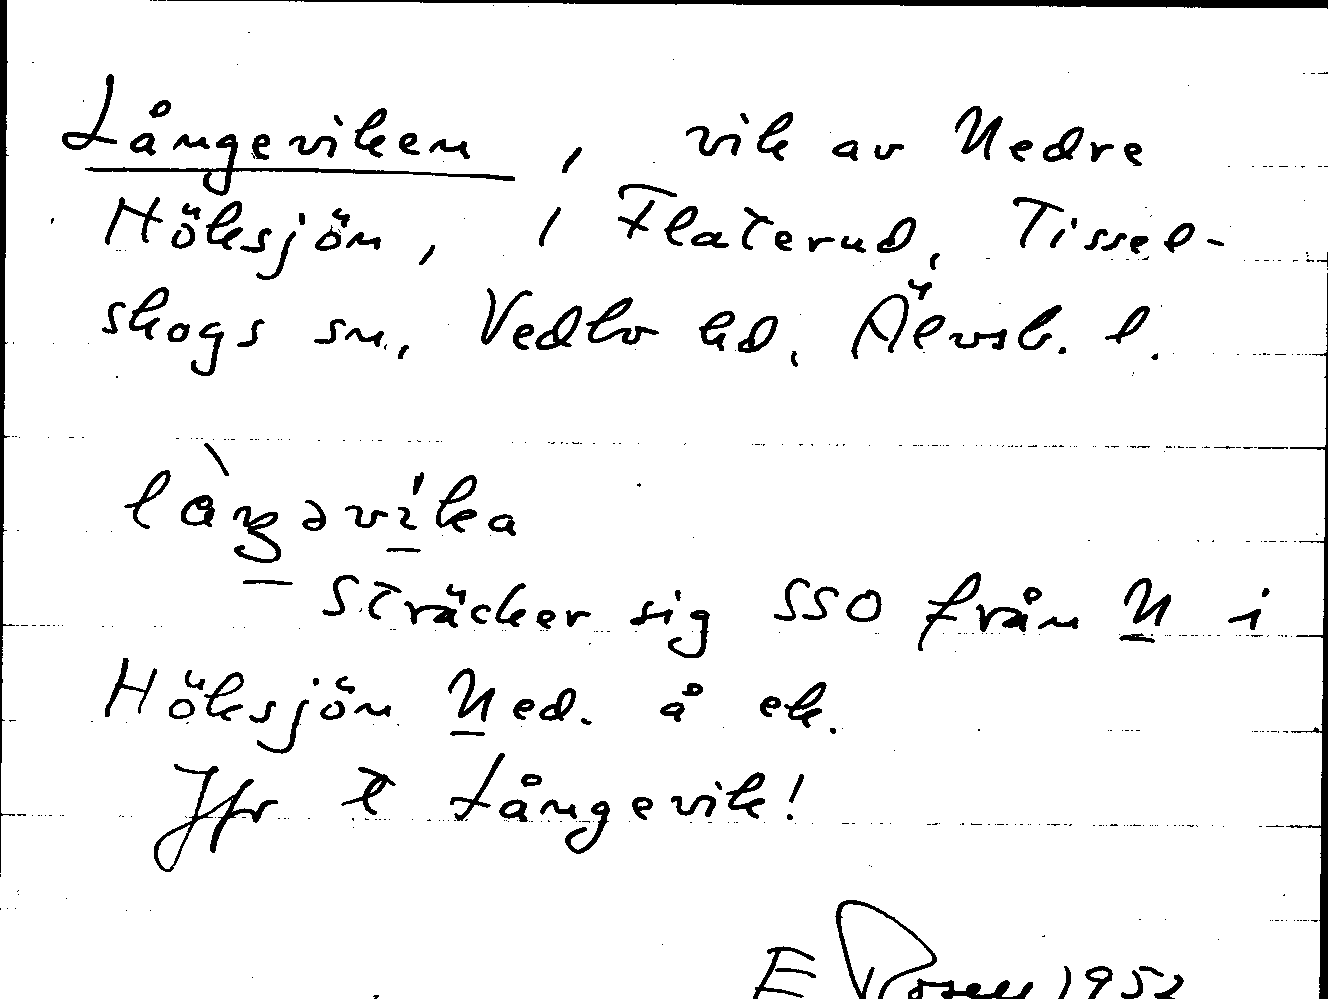 Långeviken, vik av Nedre
Höksjön, i Flaterud, Tissel-
skogs sn, Vedbo hd, Älvsb. l.
làŋəvi̱ka
Sträcker sig SSO från N i
Höksjön Ned. å ek.
Jfr t Långevik!
E Rosell 1952